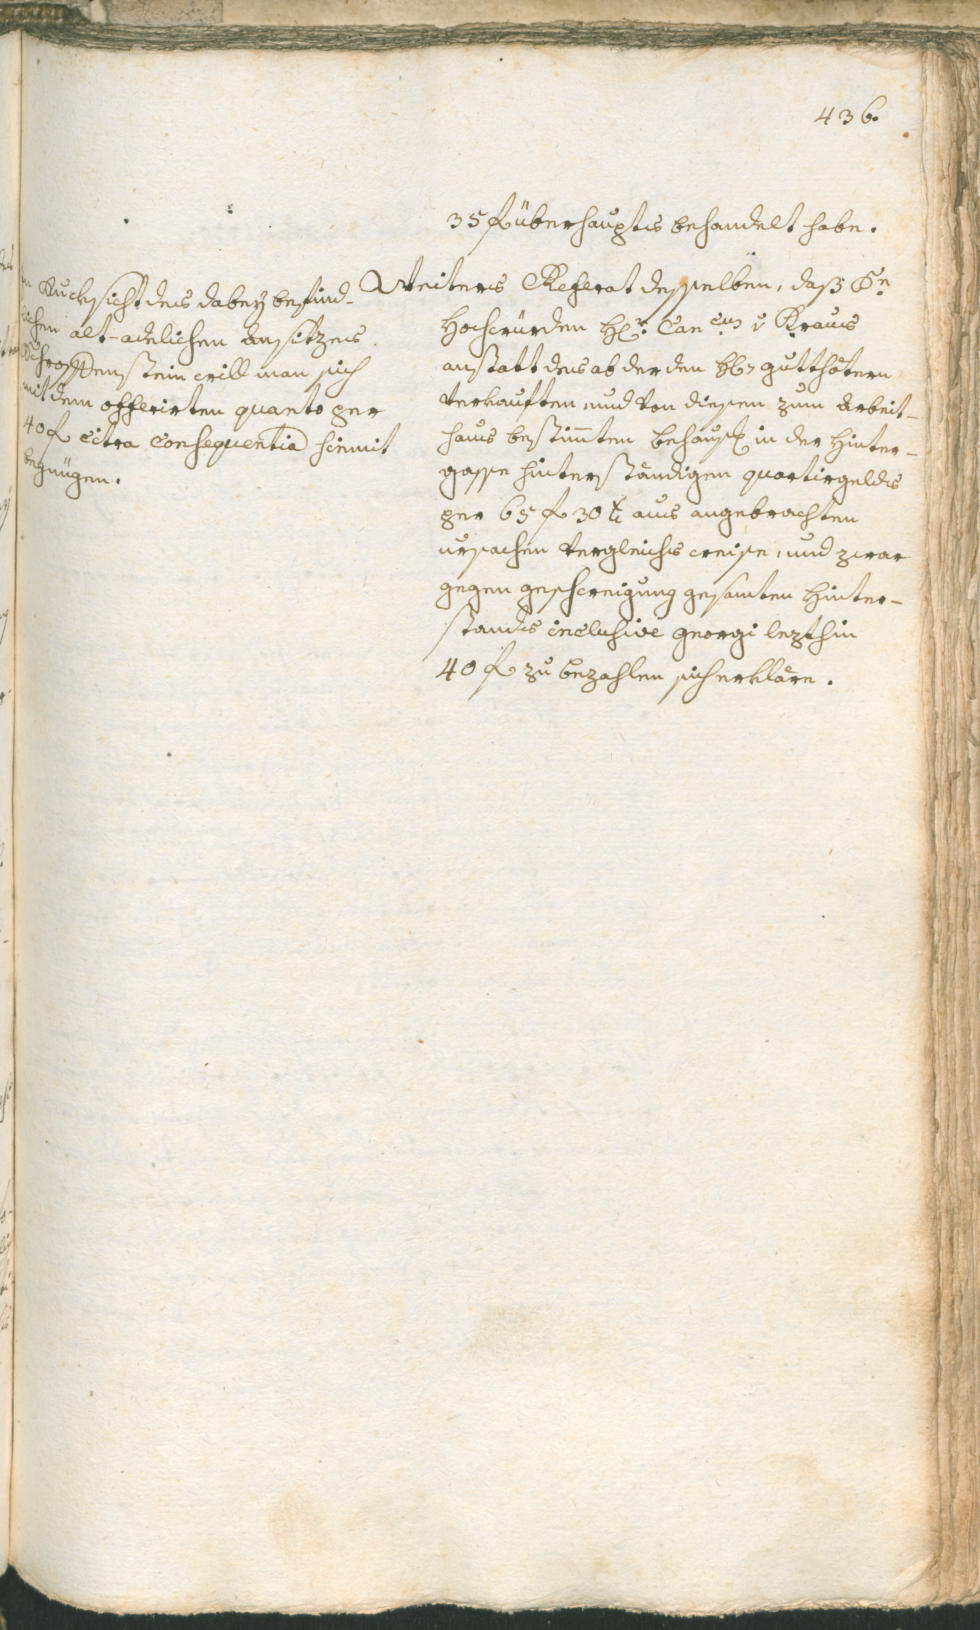 436.
35 f überhaupts behandelt habe.
Ruckhsicht des dabey befind-
lichen alt-adelichen Ansitzes
Schroffenstein will man sich
mit dem offerirten quanto per
40 f citra Consequentia hiemit
begnügen.
Weiters Referat desselben, daß Se
Hochwürden H: Can: v Kraus
anstatt des ab der den gutthätern
verkauften, und von diesen zum Arbeit-
haus bestimten Behaus: in der Hinter-
gasse hinterständigen quartirgelds
per 65 f 30 x aus angebrachten
ursachen vergleichs weise, und zwar
gegen geschweigung gesamten Hinter-
stands inclusive georgi lezthin
40 f zu bezahlen sich erkläre.